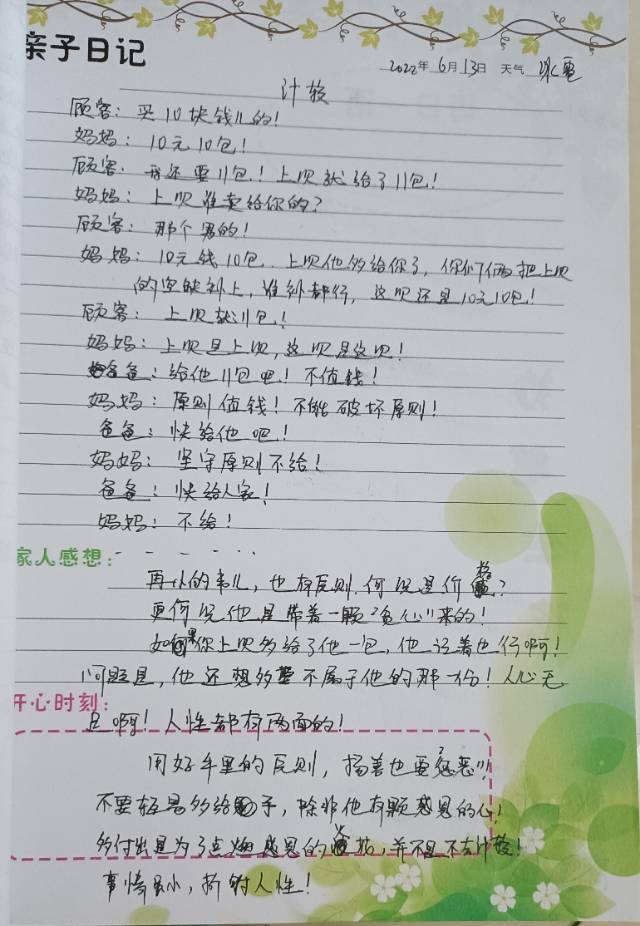 亲子日记
2022年 6月13日 天气 冰雹
计较
顾客：买10块钱儿的！
妈妈：10元10包！
顾客：我还要11包！上次就给了11包！
妈妈：上次谁卖给你的？
顾客：那个男的！
妈妈：10元钱10包．上次他多给你了，你们俩把上次
的空缺补上，谁补都行，这次还是10元10包！
顾客：上次就11包！
妈妈：上次是上次，这次是这次！
爸爸：给他11包吧！不值钱！
妈妈：原则值钱！不能破坏原则！
爸爸：快给他吧！
妈妈：坚守原则不给！
爸爸：快给人家！
妈妈：不给！
家人感想：
再小的事儿，也有原则．何况是价格？
更何况他是带着一颗“贪心”来的！
如果你上次多给了他一包，他记着也行啊！
问题是，他还想多要不属于他的那一份！人心无
开心时刻：
足啊！人性都有两面的！
用好手里的原则，扬善也要惩恶！
不要轻易多给予，除非他有颗感恩的心！
多付出是为了点燃感恩的火苗，并不是不去计较！
事情虽小，折射人性！